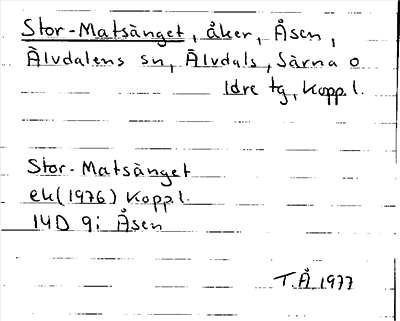 Stor-Matsänget, åker, Åsen,
Älvdalens sn, Älvdals, Särna o
Idre tg, Kopp.l.
Stor-Matsänget
ek(1976) Kopp.l.
14D 9i Åsen
T.Å 1977